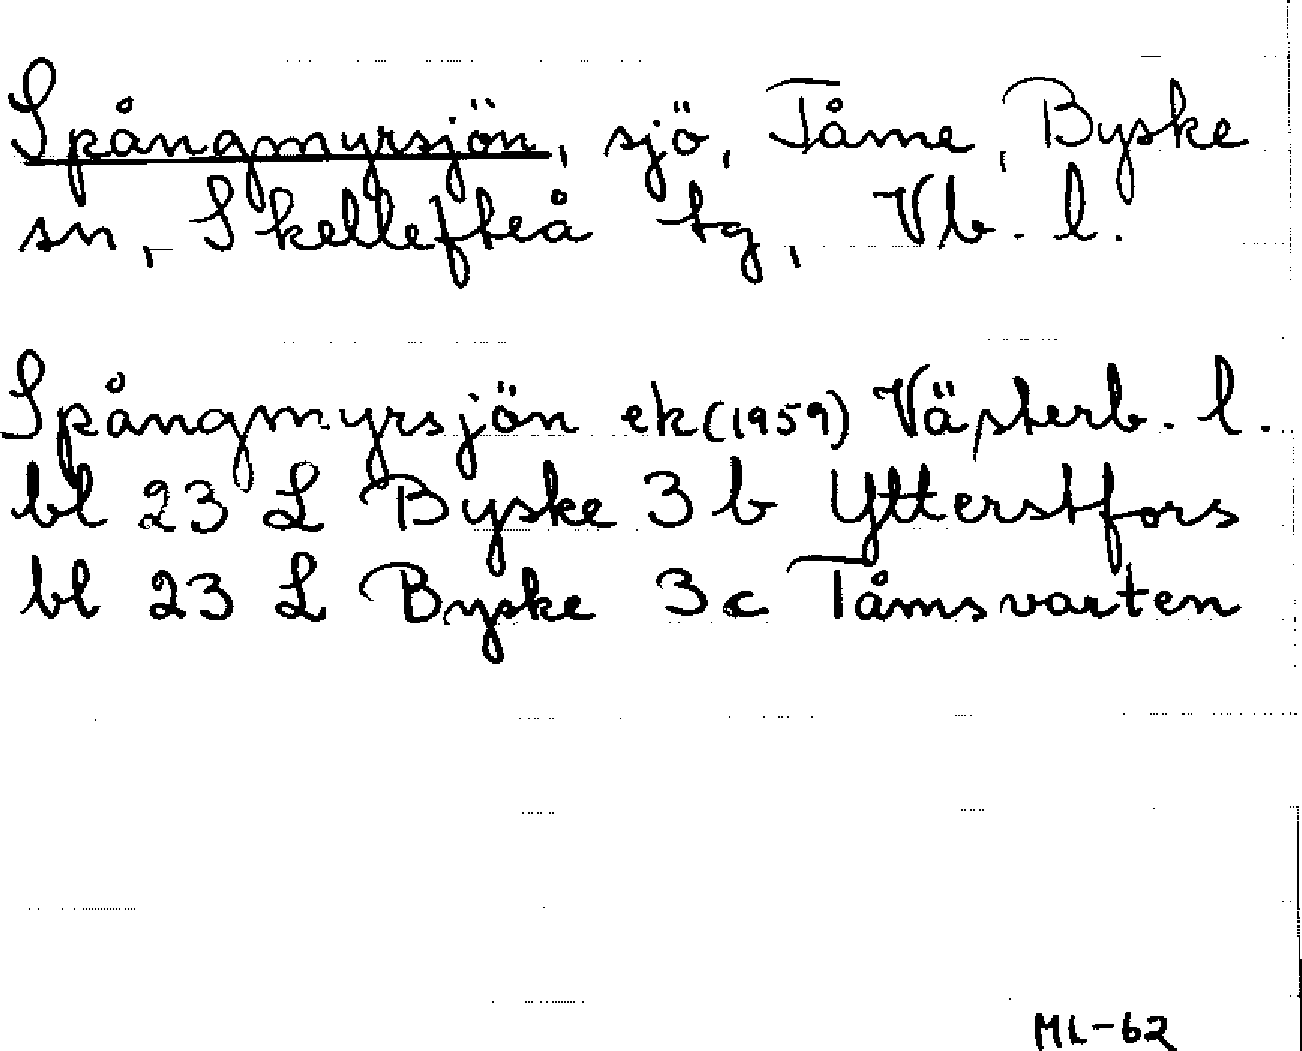 Spångmyrsjön, sjö, Tåme, Byske
sn, Skellefteå tg, Vb. l.
Spångmyrsjön ek (1959) Västerb. l.
bl 23 L Byske 3 b Ytterstfors
bl 23 L Byske 3 c Tåmsvarten
ML-62